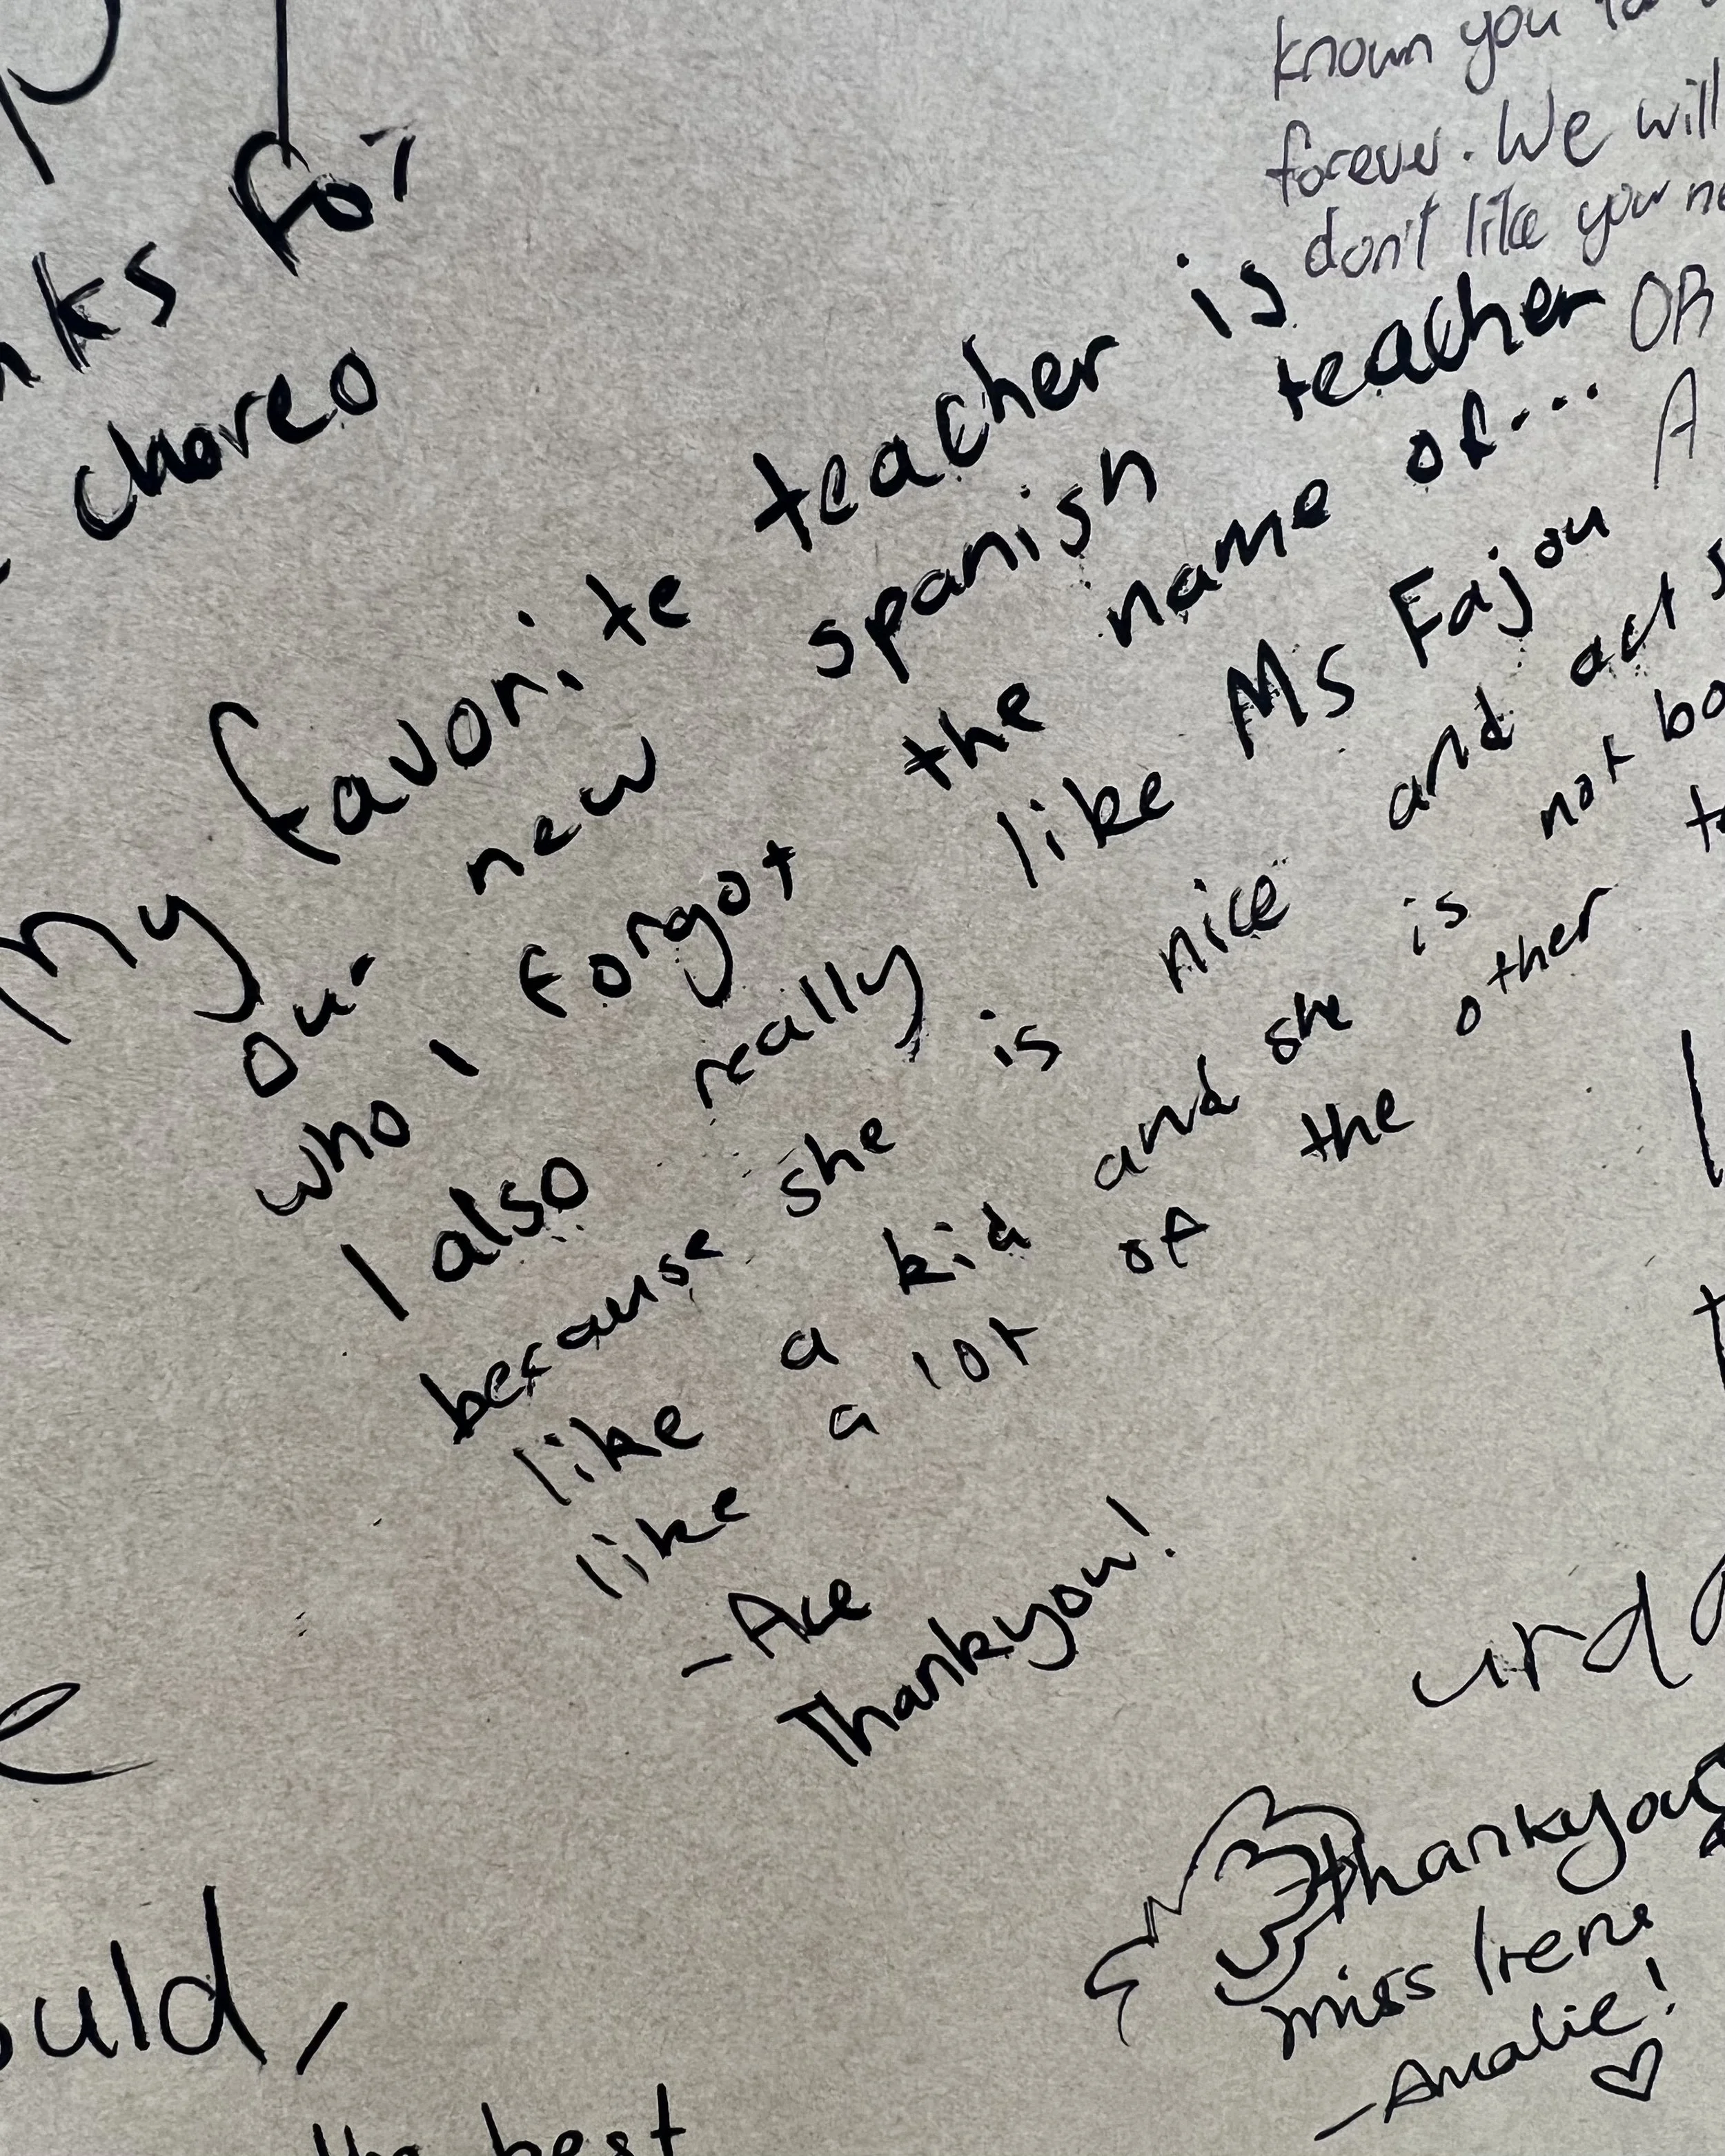 for
choreo
known you
forever. We will
don't like your
OR
A
My favorite teacher is
our new spanish teacher
who I forgot the name of...
I also really like Ms Fajou
because she is nice and act
like a kid and she is not
like a lot of the other
-Ace
Thankyou!
Thankyou
miss Irene
-Amalie!
the best